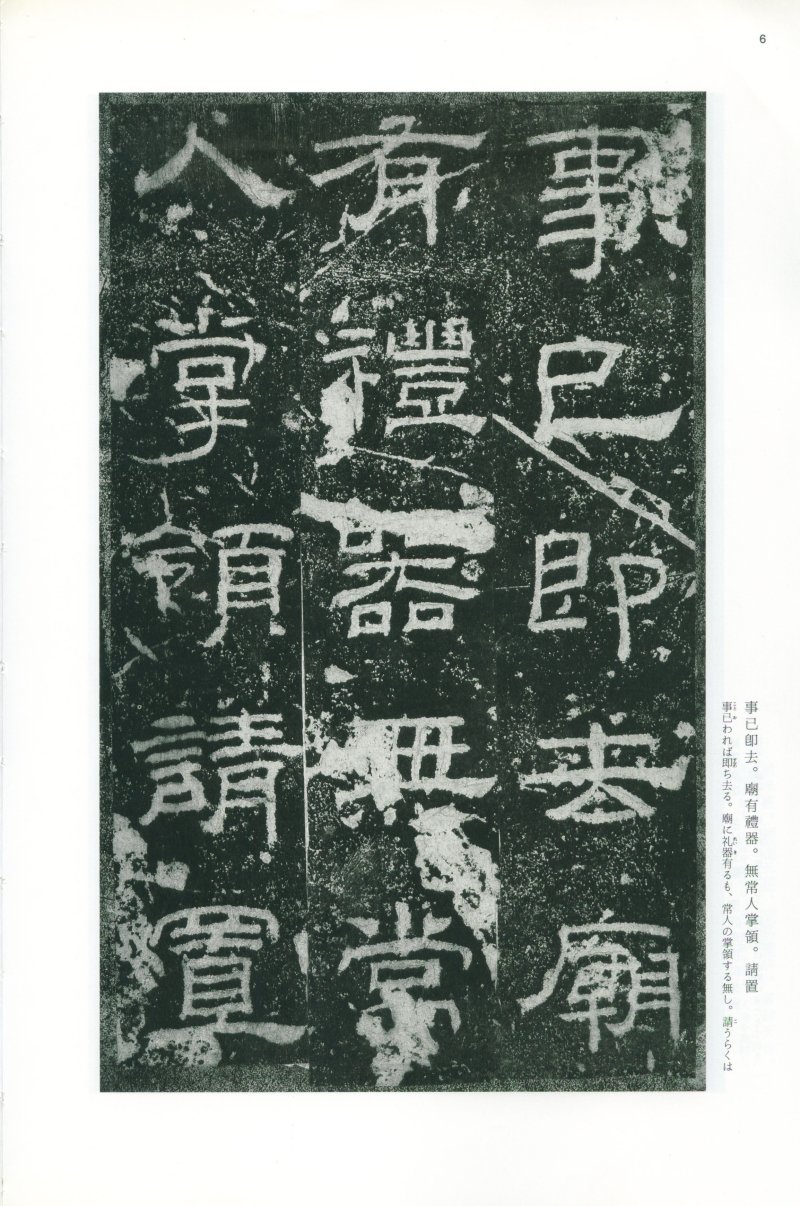 6
事已即去廟
有禮器無常
人掌領請置
事已卽去。廟有禮器。無常人掌領。請置
事已われば即ち去る。廟に礼器有るも、常人の掌領する無し。請うらくは